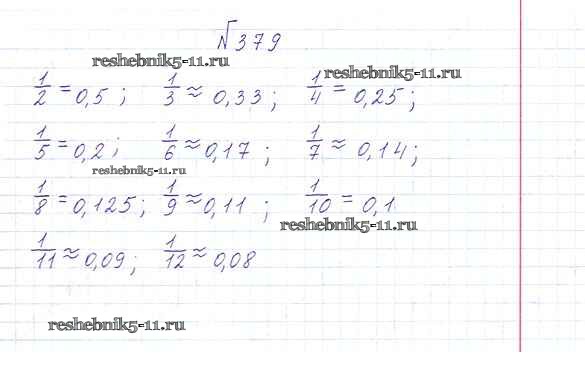 №379
reshebnik5-11.ru
reshebnik5-11.ru
1/2 = 0,5 ; 1/3 ≈ 0,33 ; 1/4 = 0,25 ;
1/5 = 0,2 ; 1/6 ≈ 0,17 ; 1/7 ≈ 0,14 ;
reshebnik5-11.ru
1/8 = 0,125 ; 1/9 ≈ 0,11 ; 1/10 = 0,1
reshebnik5-11.ru
1/11 ≈ 0,09 ; 1/12 ≈ 0,08
reshebnik5-11.ru